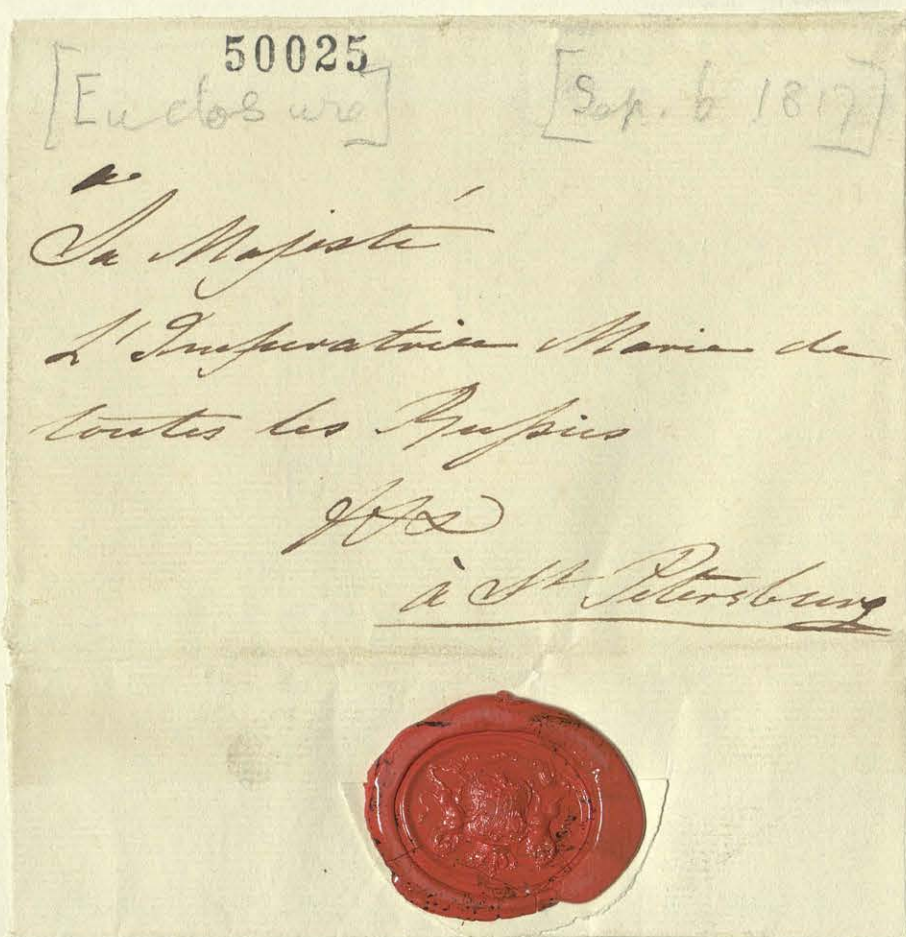 50025
[Enclosure] [Sep. 6 1817]
a
Sa Majesté
L'Imperatrice Marie de
toutes les Russies
&&&
à St Petersburg